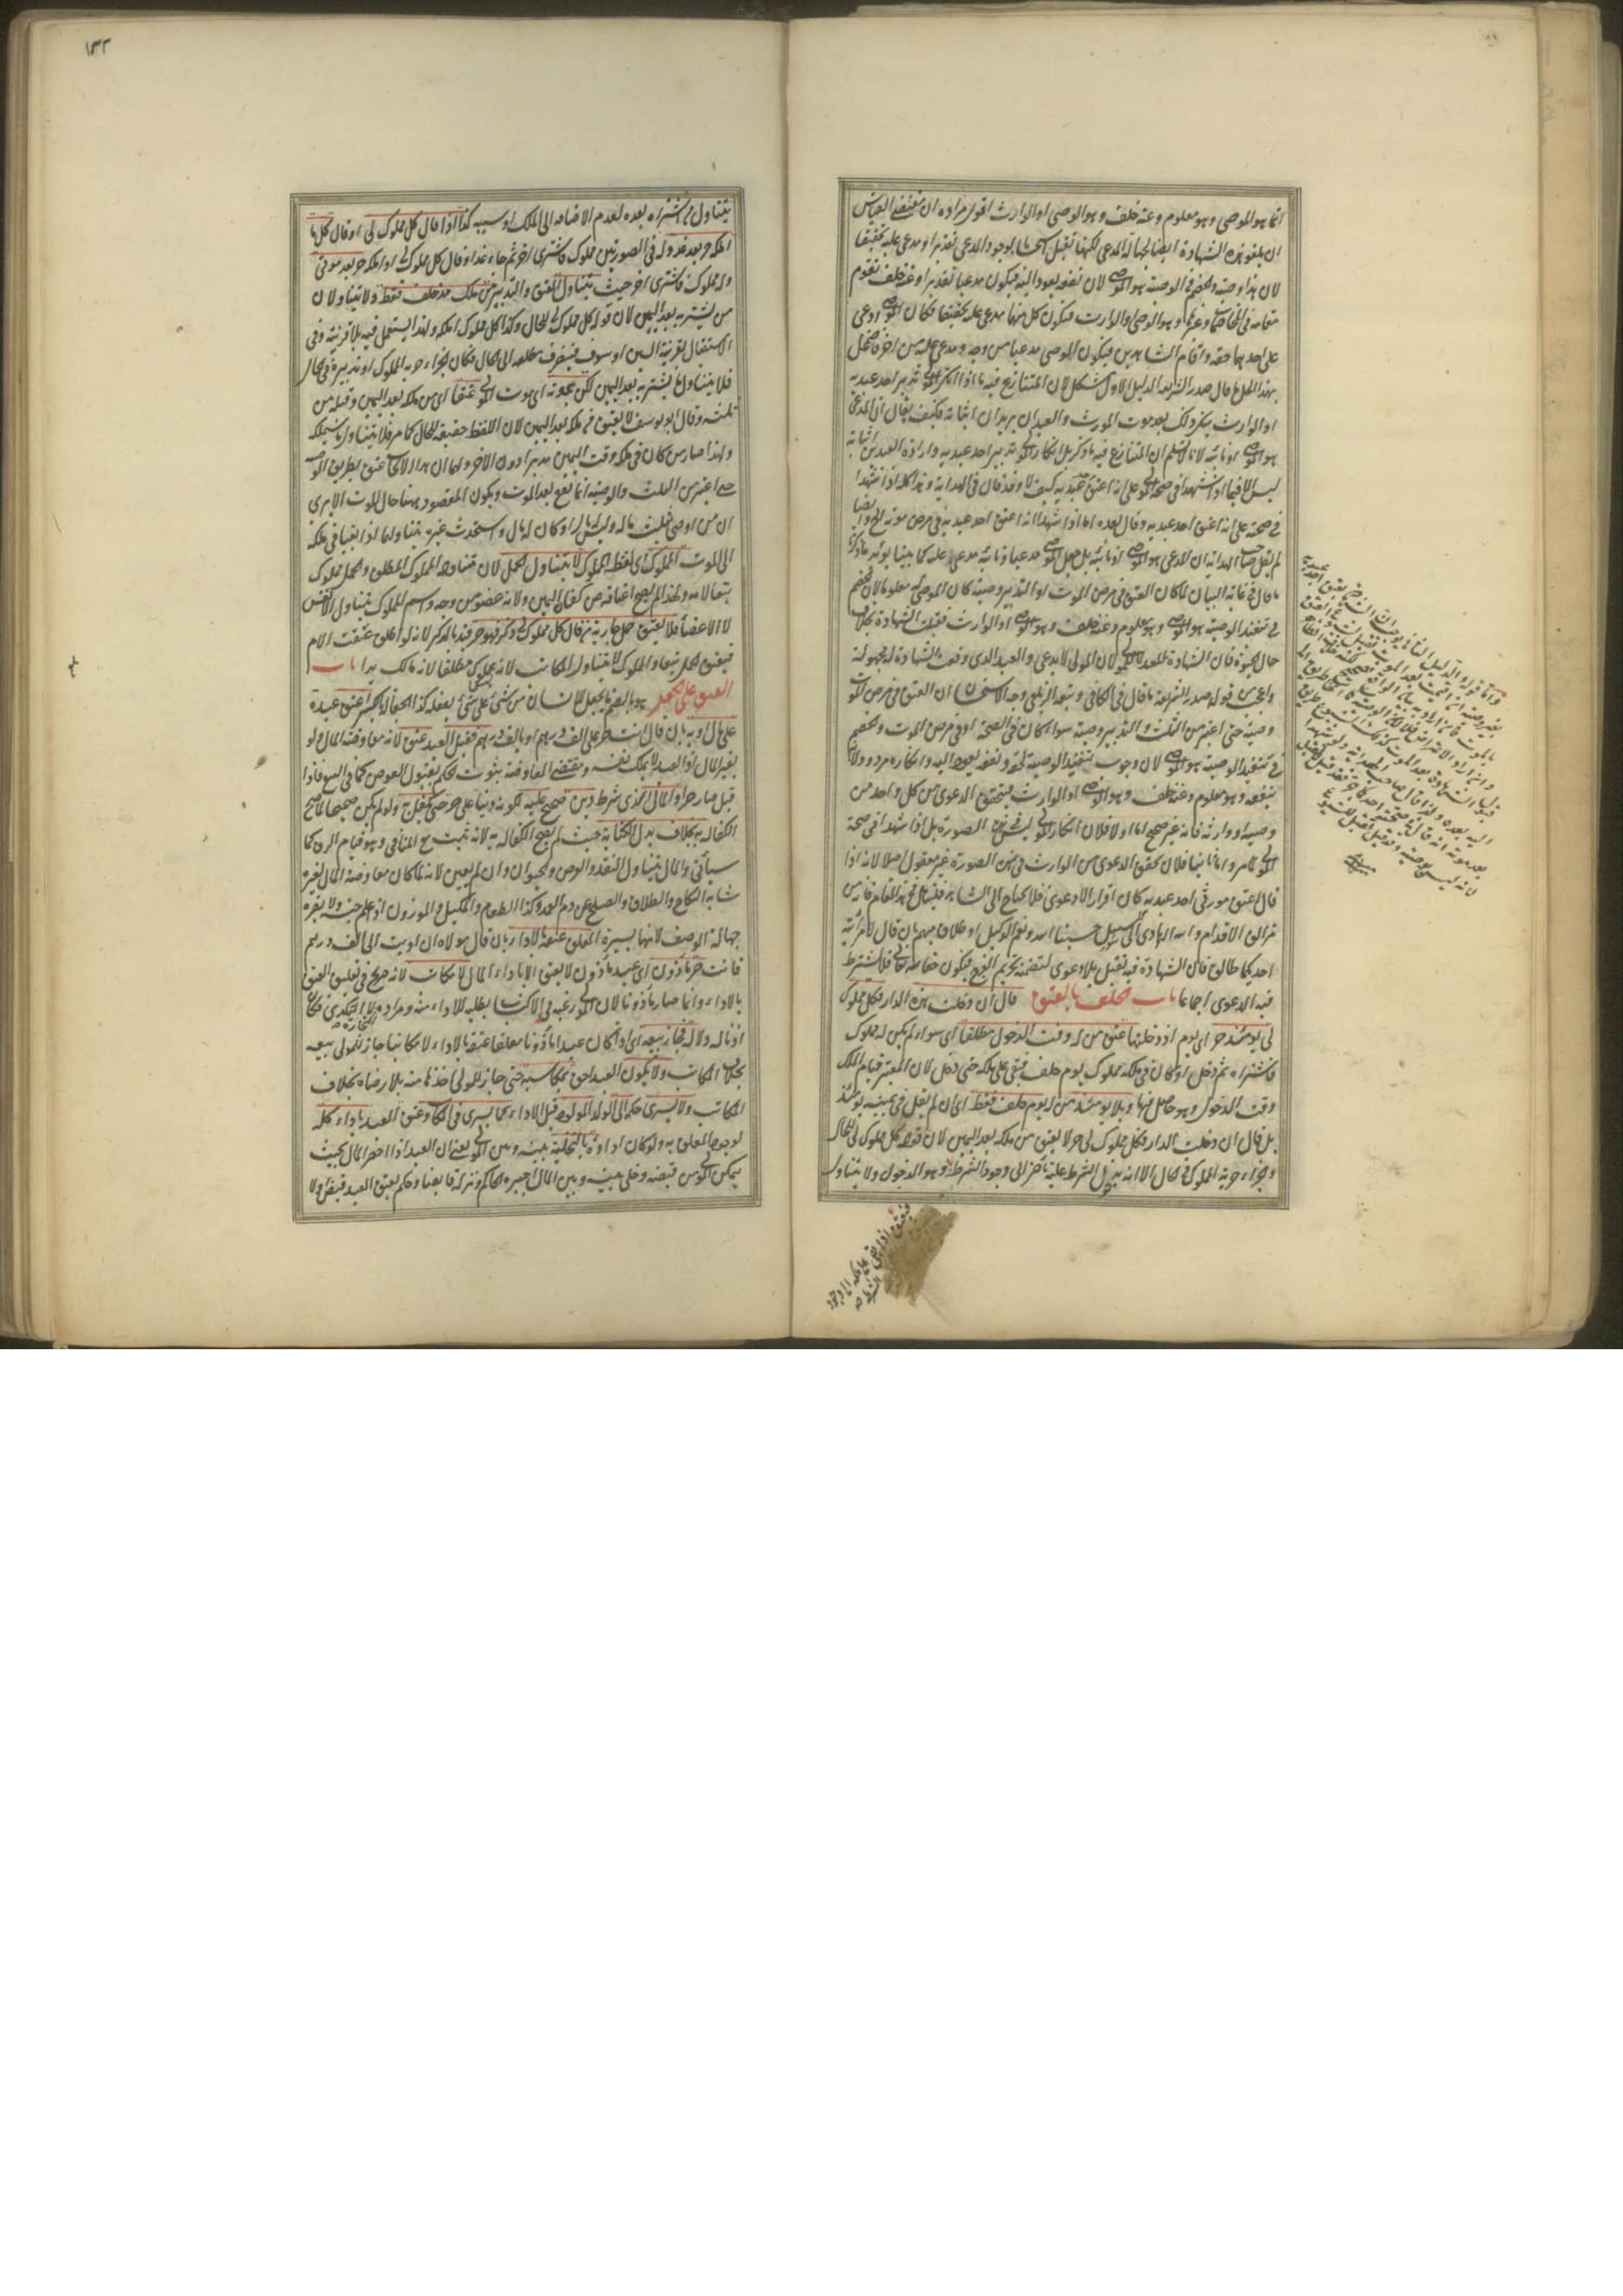 انما هو الموصى وهو معلوم وعنه خلف وهو الوصى او الوارث اقول مراده ان مقتضى القياس
ان يلغو هذه الشهادة ايضا لجهالة المدعى لكنها تقبل استحسانا لوجود المدعى تقديرا ومدعى عليه تحقيقا
لان هذا وصية والخصم فى الوصية هو الموصى لان نفعه يعود اليه فيكون مدعيا تقديرا وعنه خلف تقوم
مقامه فى وهو الوصى والوارث فيكون كل منهما مدعى عليه تحقيقا فكان الموصى ادعى
على احدهما حقه واقام الشاهدين فيكون الموصى مدعيا من وجه ومدعى عليه من اخر فاضمحل
بهذا الحل ما قال صدر الشريعة الدليل الاول مشكل لان المتنازع فيه ما اذا انكر المولى تدبير احد عبديه
او الوارث ينكر ذلك بعد موت المورث والعبدان يريدان اثباته فكيف يقال ان المدعى
هو الموصى او نائبه لانا لا نسلم ان المتنازع فيه ما ذكر بل انكار المولى تدبير احد عبديه وارادة العبدين اثباته
ليس الا فيما اذا شهدا فى صحة المولى على انه اعتق عبديه كيف لا وقد قال فى الهداية وهذا كله اذا شهدا
فى صحته على انه اعتق احد عبديه وقال بعده اما اذا شهدا انه اعتق احد عبديه فى مرض موته الخ وايضا
لم يقل صاحب الهداية ان المدعى هو الموصى او نائبه بل جعل الموصى مدعيا ونائبه مدعى عليه كما بينا يؤيد ما ذكرنا
ما قال فى غاية البيان لما كان العتق فى مرض الموت او التدبير وصية كان الموصى له معلوما لان الخصم
فى تنفيذ الوصية هو الموصى وهو معلوم وعنه خلف وهو الوصى او الوارث فقبلت الشهادة بخلاف
حال الحيوة فان الشهادة للعبد لا للمولى لان المولى لا يدعى والعبد الذى وقعت الشهادة له مجهول
واعجب من قول صدر الشريعة ما قال فى الكافى وتبعه الزيلعى وجه الاستحسان ان العتق فى مرض الموت
وصية حتى اعتبر من الثلث والتدبير وصية سواء كان فى الصحة او فى مرض الموت والخصم
فى تنفيذ الوصية هو الموصى لان وجوب تنفيذ الوصية لحقه ونفعه يعود اليه وانكاره مردود
بنفعه وهو معلوم وعنه خلف وهو الوصى او الوارث فيتحقق الدعوى من كل واحد من
وصيه او وارثه فانه غير صحيح اما اولا فلان انكار المولى ليس فى هذه الصورة بل اذا شهدا فى صحة
المولى كما مر واما ثانيا فلان تحقق الدعوى من الوارث فى هذه الصورة غير معقول اصلا لانه اذا
قال اعتق مورثى احد عبديه كان اقرارا لا دعوى فلا يحتاج الى الشاهد فليتأمل فى هذا المقام فانه من
مزالق الاقدام والله الهادى الى سبيل حسبنا الله ونعم الوكيل او طلاق مبهم بان قال لامرأتيه
احديكما طالق فان الشهادة فيه تقبل بلا دعوى لتضمنه تحريم الفرج فيكون حقا لله تعالى فلا يشترط
فيه الدعوى اجماعا باب الحلف بالعتق قال ان دخلت هذه الدار فكل مملوك
لى يومئذ حر اى يوم اذ دخلتها عتق من له وقت الدخول مطلقا اى سواء لم يكن له مملوك
فاشتراه ثم دخل او كان فى ملكه مملوك يوم حلف فبقى على ملكه حتى دخل لان المعتبر قيام الملك
وقت الدخول وهو حاصل فيهما وبلا يومئذ من له يوم حلف فقط اى ان لم يقل فى يمينه يومئذ
بل قال ان دخلت الدار فكل مملوك لى حر لا يعتق من ملكه بعد اليمين لان قوله كل مملوك لى للحال
والجزاء حرية المملوك فى الحال الا انه بدخول الشرط عليه تأخر الى وجود الشرط وهو الدخول ولا يتناول
١٣٢
يتناول من اشتراه بعده لعدم الاضافة الى الملك او سببه كذا اذا قال كل مملوك لى او قال كل ما
املكه حر بعد غد وله فى الصورتين مملوك فاشترى اخر ثم جاء غد او قال كل مملوك لى او املكه حر بعد موتى
وله مملوك فاشترى اخر حيث يتناول العتق والتدبير من ملك مذ حلف فقط ولا يتناولان
من يشتريه بعد اليمين لان قوله كل مملوك لى للحال وكذا كل مملوك املكه ولهذا يستعمل فيه بلا قرينة وفى
الاستقبال بقرينة السين او سوف فينصرف مطلقه الى الحال فكان الجزاء حرية المملوك او تدبيره فى الحال
فلا يتناول ما يشتريه بعد اليمين لكن بموته اى بموت المولى عتقا اى من ملكه بعد اليمين وقبله من
ثلثه وقال ابو يوسف لا يعتق من ملكه بعد اليمين لان اللفظ حقيقة للحال كما مر فلا يتناول ما سيملكه
ولهذا صار من كان فى ملكه وقت اليمين مدبرا دون الاخر ولهما ان هذا الايجاب عتق بطريق الوصية
حتى اعتبر من الثلث والوصية انما تقع بعد الموت ويكون المقصود بهما حال الموت الا يرى
ان من اوصى بثلث ماله وليس له مال او كان له مال واستحدث غيره يتناولهما اذا بقيا فى ملكه
الى الموت المملوك اى لفظ المملوك لا يتناول الحمل لان متناوله المملوك المطلق والحمل مملوك
تبعا لامه ولهذا لم يصح اعتاقه عن كفارة اليمين ولانه عضو من وجه واسم المملوك يتناول الانفس
لا الاعضاء فلا يعتق حمل جارية من قال كل مملوك لى ذكر فهو حر قيد بالذكر لانه لو اطلق عتقت الام
فيعتق الحمل تبعا والمملوك لا يتناول المكاتب لانه مملوك مطلقا لانه مالك يدا باب
العتق على الجعل هو بالضم ما يجعل للانسان من شئ على شئ يفعله كذا الجعالة بالكسر اعتق عبده
على مال او به بان قال انت حر على الف درهم او بالف درهم فقبل العبد عتق لانه معاوضة المال
بغير المال اذ العبد لا يملك نفسه ومقتضى المعاوضة ثبوت الحكم بقبول العوض كما فى البيع فاذا
قبل صار حرا والمال الذى شرط دين صحيح عليه لكونه دينا على حر حتى تكفل به ولو لم يكن صحيحا لما صح
الكفالة به بخلاف بدل الكتابة حيث لم يصح الكفالة به لانه ثبت مع المنافى وهو قيام الرق كما
سيأتى والمال يتناول النقد والعرض والحيوان وان لم يعين لانه لما كان معاوضة المال بغيره
شابه النكاح والطلاق والصلح عن دم العمد وكذا الطعام والمكيل والموزون اذا علم جنسه ولا يضره
جهالة الوصف لانها يسيرة المعلق عتقه بالاداء بان قال مولاه ان اديت الى الف درهم
فانت حر مأذون اى عبد مأذون لا يعتق الا باداء المال لا مكاتب لانه صريح فى تعليق العتق
بالاداء وانما صار مأذونا لان المولى رغبه فى الاكتساب بطلبه الاداء منه ومراده التجارة لا التكدى فكان
اذنا له دلالة فجاز بيعه اى اذا كان عبدا مأذونا معلقا عتقه بالاداء لا مكاتبا جاز للمولى بيعه
بخلاف المكاتب ولا يكون العبد احق بمكاسبه حتى جاز للمولى اخذها منه بلا رضاه بخلاف
المكاتب ولا يسرى حكمه الى الولد المولود قبل الاداء كما يسرى فى المكاتب وعتق العبد باداء كله
لوجود المعلق به ولو كان اداؤه بالتخلية بينه وبين المولى يعنى ان العبد اذا احضر المال بحيث
يمكن المولى من قبضه وخلى بينه وبين المال اجبره الحاكم ونزله قابضا وحكم بعتق العبد قبض ولا